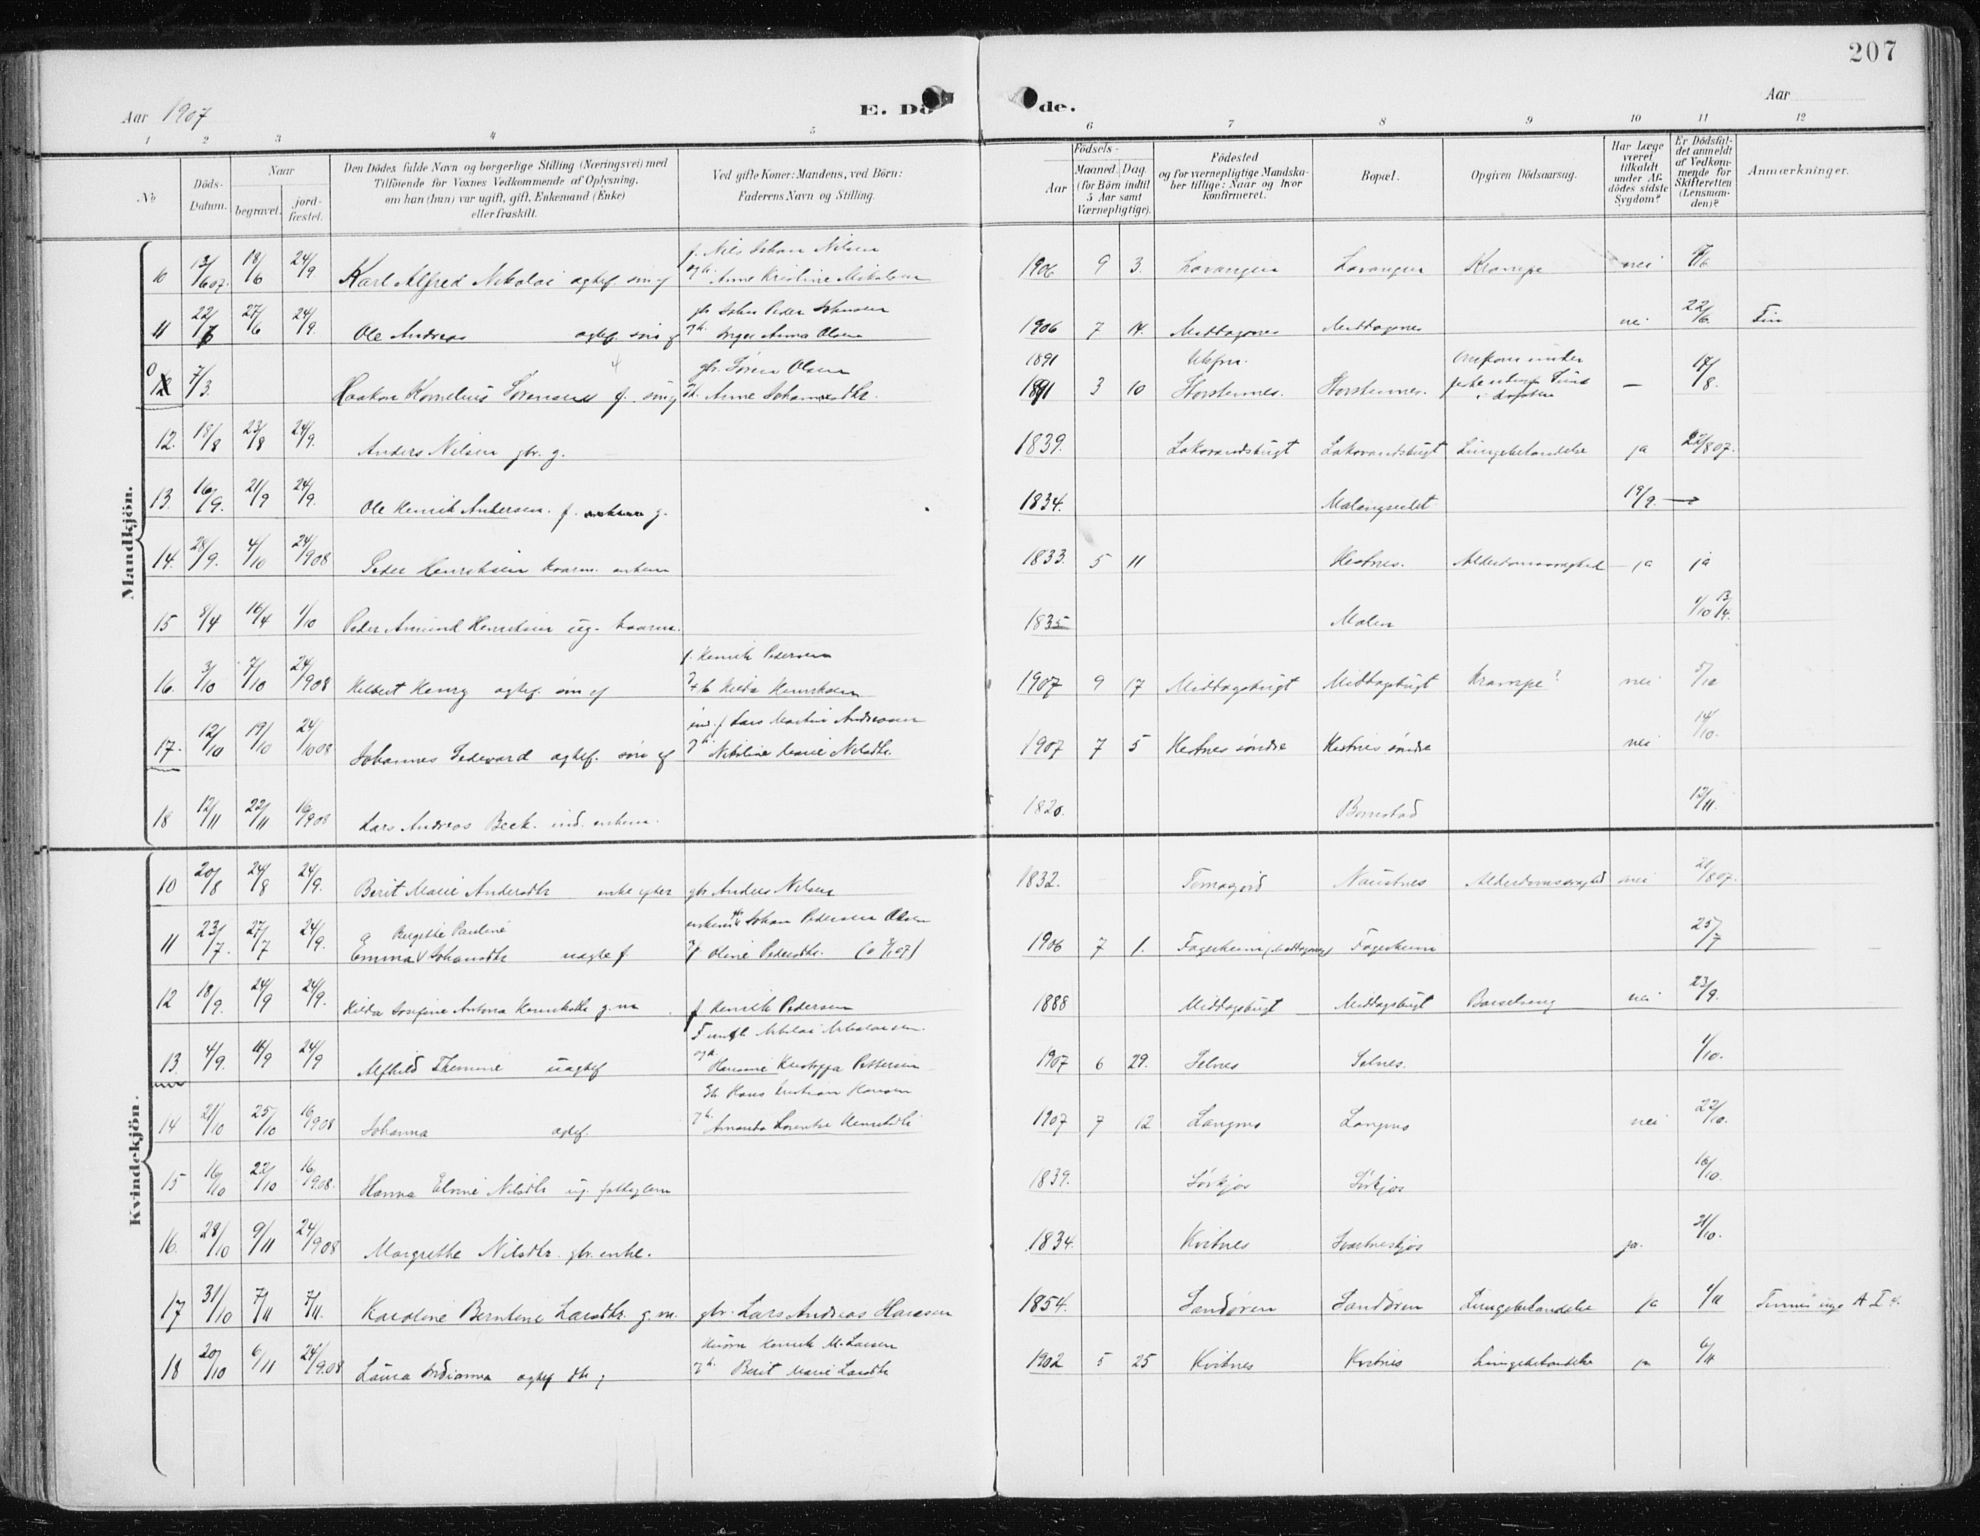 207
Aar 1907
E. Dö
de.
Aar
1 2 3 4 5 6 7 8 9 10 11 12
No
Döds-Datum.
Naar
begravet.
jord-fæstet.
Den Dödes fulde Navn og borgerlige Stilling (Næringsvei) med
Tilföiende for Voxnes Vedkommende af Oplysning,
om han (hun) var ugift, gift, Enkemand (Enke)
eller fraskilt.
Ved gifte Koner: Mandens, ved Börn:
Faderens Navn og Stilling.
Födsels-
Aar
Maaned. Dag.
(for Börn indtil
5 Aar samt
Værnepligtige).
Födested
og for værnepligtige Mandska-
ber tillige: Naar og hvor
konfirmeret.
Bopæl.
Opgiven Dödsaarsag.
Har Læge
været
tilkaldt
under Af-
dödes sidste
Sygdom?
Er Dödsfal-
det anmeldt
af Vedkom-
mende for
Skifteretten
(Lensman-
den)?
Anmærkninger.
Mandkjön.
f. Nils Johan Nilsen
10 13/6 07. 18/6 24/9 Karl Alfred Nikolai ægtef. søn af Anne Kristine Mikalsen 1906 9 3. Lavangen Lavangen Krampe nei
gbr. Johan Peder Johnsen
11 27/6 24/9. Ole Andreas ægtef. søn af Inger Anna Olsen 1906 7 14. Middagsnes Middagsnes nei 22/6. Fin
gbr. Søren Olsen 1891
7/3 Haakon Kornelius Sørensen f. søn af Anne Johannesdtr. 1891 3 10 Storstennes. Storstennes. — 17/8.
12. 18/8 23/8 24/9. Anders Nilsen gbr. g. 1839. Lakevandsbugt Lakevandsbugt Lungebetændelse ja 22/8 07.
13. 16/9. 21/9 24/9. Ole Henrik Andersen. f. g. 1834. Malangseidet 19/9.
14. 28/9. 4/10 24/9 08 Peder Henriksen kaarm. enkem 1833. 5 11 Hestnes. Alderdomssvaghed ja ja
15 8/4 16/4 1/10 Peder Amund Henriksen ug. kaarm. 1835 Malen 1/10 13/4.
f. Henrik Pedersen
16. 3/10 7/10 24/9 08 Hilbert Henry ægtef. søn af Hilda Henriksen 1907 9 17 Middagsbugt Middagsbugt Krampe? nei 5/10
ind. f Lars Martin Andreassen
17. 12/10 19/10 24/10 08 Johannes Sedeward ægtef. søn af Nikoline Marie Nilsdtr. 1907 7 5 Hestnes søndre Hestnes søndre nei 14/10.
18 12/11 22/11 16/9 08 Lars Andreas Beck. ind. enkem. 1820. 13/11.
Kvindekjön.
10 20/8 24/8 24/9. Berit Marie Andersdtr enke efter gbr Anders Nilsen 1832. Tomasjord Naustnes Alderdomssvaghed nei 21/8 07.
Birgitte Pauline enkem. Johan Pedersen Olsen
11 23/7. 27/7 24/9. Emma Johansdtr uægte f Oline Pedersdtr. 1906 7 1. Fagerheim Fagerheim 25/7
12 18/9. 24/9 24/9. Hilda Josefine Antona Henriksdtr g.m. f Henrik Pedersen 1888 Middagsbugt Middagsbugt Barselseng nei 23/9.
ungk. Nikolai Nikolaisen.
13. 4/9. 24/9 Alfhild Themine uægtef Hansine Kristofa Pettersen 1907 6 29. Selnes Selnes. 1/10.
Hans Kristian Hansen
14 21/10 25/10 16/9 08 Johanna ægtef. Amanda Lorentse Henriksdtr 1907 7 12 Langnes Langnes nei 22/10.
15 16/10 22/10 16/9 08. Hanna Elene Nilsdtr ug. fattiglem 1839. Sørkjos Sørkjos 16/10.
16. 28/10 9/11 24/9 08 Margrethe Nilsdtr. gbr. enke. 1834. Kvitnes Svartneskjos ja. 31/10.
17 31/10 7/11 7/11. Karoline Berntine Larsdtr. g.m. gbr. Lars Andreas Hansen 1854. Sandøren Sandøren Lungebetændelse ja 1/11
Henrik M. Larsen
18 20/10 6/11 24/9 08 Laura Indianna ægtef dtr af Berit Marie Larsdtr 1902 5 25 Kvitnes Kvitnes Lungebetændelse ja 6/11